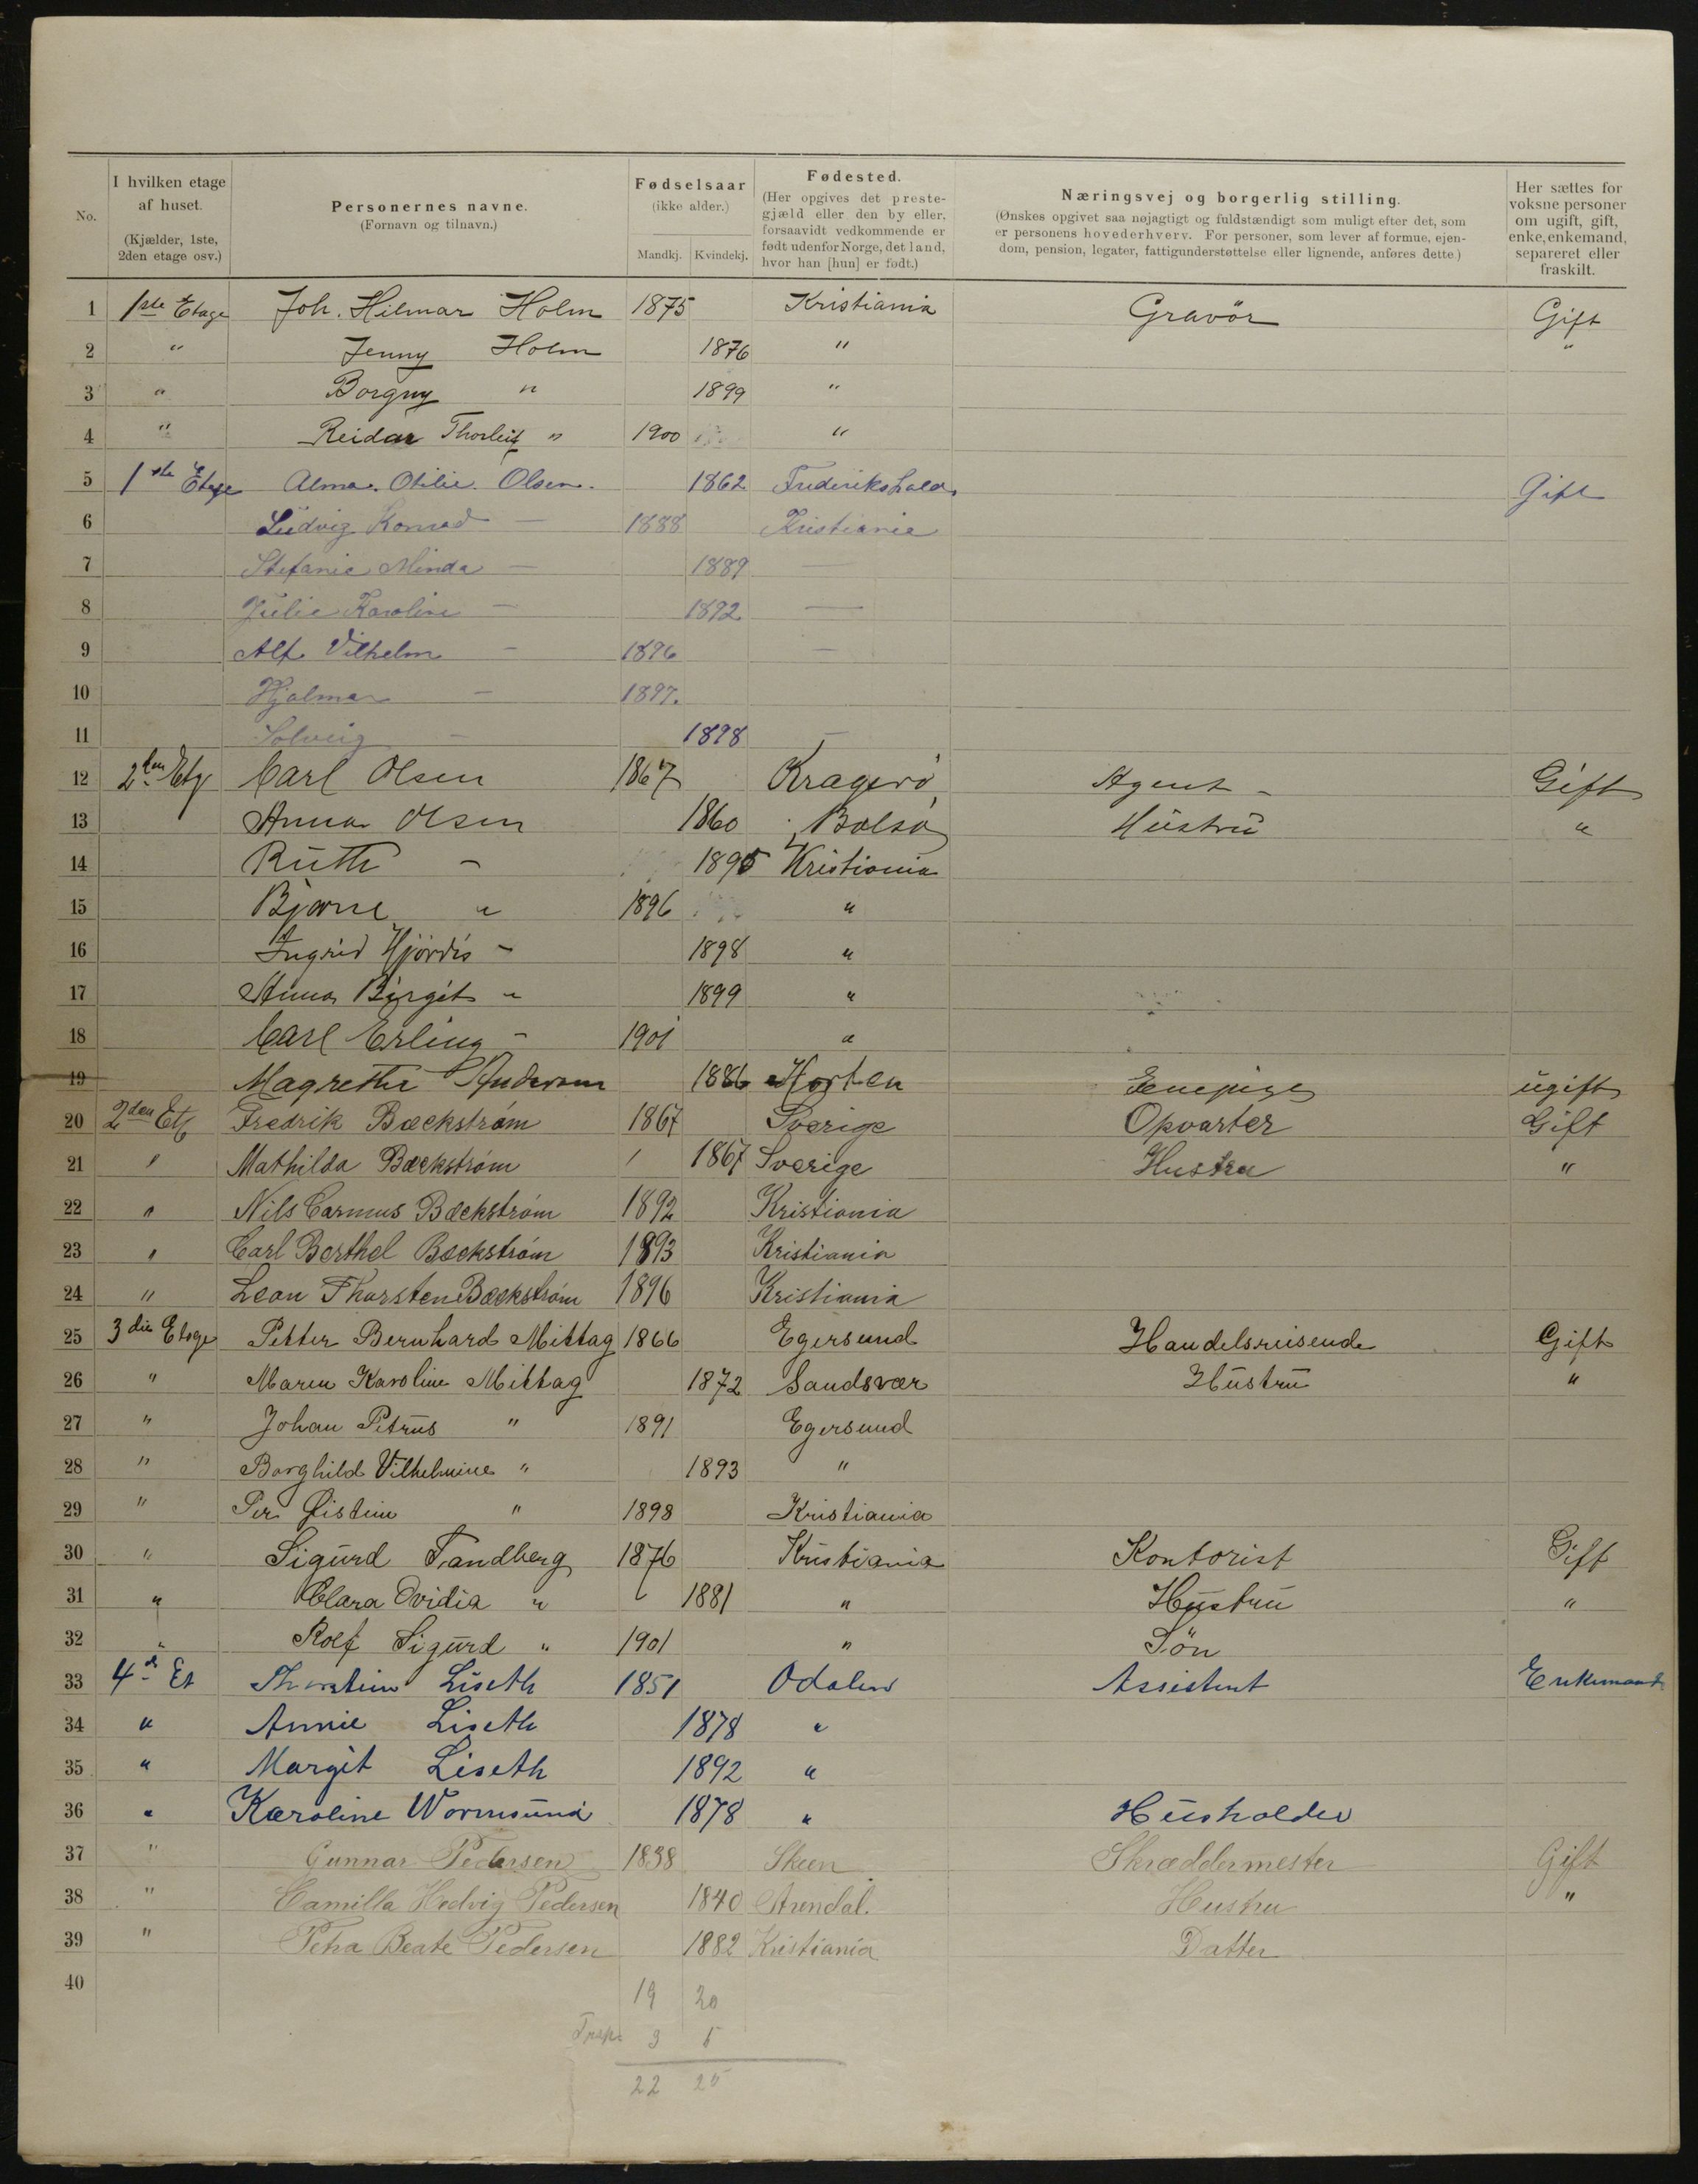 No.
I hvilken etage af huset. (Kjælder, 1ste, 2den etage osv.)
Personernes navne. (Fornavn og tilnavn.)
Fødselsaar (ikke alder.) Mandkj. Kvindekj.
Fødested. (Her opgives det prestegjæld eller den by eller, forsaavidt vedkommende er født udenfor Norge, det land, hvor han [hun] er født.)
Næringsvej og borgerlig stilling. (Ønskes opgivet saa nøjagtigt og fuldstændigt som muligt efter det, som er personens hovederhverv. For personer, som lever af formue, ejendom, pension, legater, fattigunderstøttelse eller lignende, anføres dette.)
Her sættes for voksne personer om ugift, gift, enke, enkemand, separeret eller fraskilt.
1 1ste Etage Joh. Hilmar Holm 1875 Kristiania Gravör Gift
2 " Jenny Holm 1876 " "
3 " Borgny " 1899 "
4 " Reidar Thorleif " 1900 "
5 1ste Etage Alma. Otilie. Olsen. 1862 Frederikshald. Gift
6 Ludvig Konrad — 1888 Kristiania
7 Stefanie Minda — 1889 —
8 Julie Karoline — 1892 —
9 Alf Vilhelm — 1896 —
10 Hjalmar — 1897.
11 Solveig — 1898 —
12 2den Etg Carl Olsen 1867 Kragerö Agent - Gift
13 Anna Olsen 1860 Bolsö Hustru "
14 Ruth - 1895 Kristiania
15 Bjarne " 1896 "
16 Ingrid Hjördis - 1898 "
17 Anna Birgit " 1899 "
18 Carl Erling - 1901 "
19 Magrethe Andersen 1886 Horten Tenepige ugift
20 2den Etg Fredrik Bæckstrøm 1867 Sverige Opvarter Gift
21 " Mathilda Bæckstrøm 1867 Sverige Hustru "
22 " Nils Carmus Bæckstrøm 1892 Kristiania
23 " Carl Berthel Bæckstrøm 1893 Kristiania
24 " Leon Thorsten Bæckstrøm 1896 Kristiania
25 3die Etage Petter Bernhard Mittag 1866 Egersund Handelsreisende Gift
26 " Maren Karoline Mittag 1872 Sandsvær Hustru "
27 " Johan Petrus " 1891 Egersund
28 " Borghild Vilhelmine " 1893 "
29 " Per Øistein " 1898 Kristiania
30 " Sigurd Tandberg 1876 Kristiania Kontorist Gift
31 " Clara Ovidia " 1881 " Hustru "
32 " Rolf Sigurd " 1901 " Sön
33 4de Et Thorstein Liseth 1851 Odalen Assistent Enkemand
34 " Annie Liseth 1878 "
35 " Margit Liseth 1892 "
36 " Karoline Wormsund 1878 " Husholder
37 " Gunnar Pedersen 1838 Skien Skræddermester Gift
38 " Camilla Hedvig Pedersen 1840 Arendal. Hustru "
39 " Petra Beate Pedersen 1882 Kristiania Datter
40
19 20
3 5
22 25